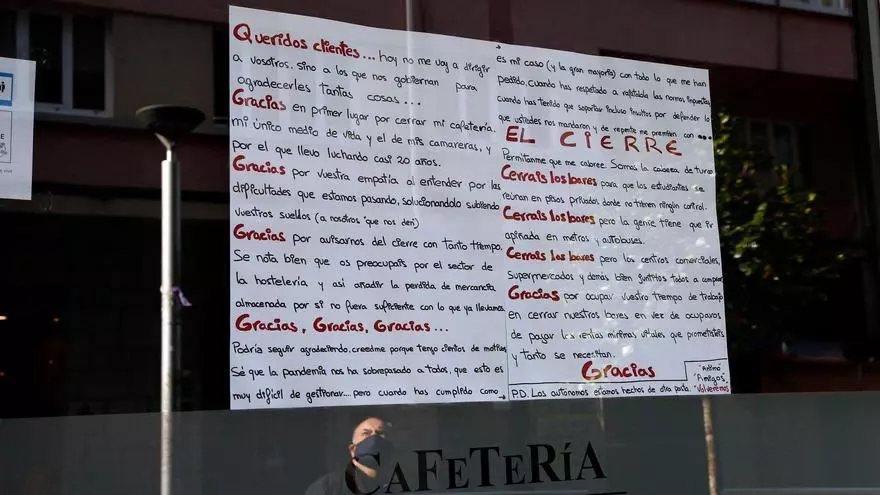 Queridos clientes... hoy no me voy a dirigir
a vosotros, sino a los que nos gobiernan para
agradecerles tantas cosas...
Gracias en primer lugar por cerrar mi cafetería,
mi único medio de vida y el de mis camareras, y
por el que llevo luchando casi 20 años.
Gracias por vuestra empatía al entender por las
dificultades que estamos pasando, solucionándolo subiendo
vuestros sueldos (a nosotros que nos den)
Gracias por avisarnos del cierre con tanto tiempo.
Se nota bien que os preocupais por el sector de
la hostelería y así añadir la perdida de mercancia
almacenada por si no fuera suficiente con lo que ya llevamos.
Gracias, Gracias, Gracias...
Podría seguir agradeciendo, creedme porque tengo cientos de motivos
Sé que la pandemia nos ha sobrepasado a todos, que esto es
muy difícil de gestionar... pero cuando has cumplido como
es mi caso (y la gran mayoría) con todo lo que me han
pedido, cuando has respetado a rajatabla las normas impuestas
cuando has tenido que soportar incluso insultos por defender lo
que ustedes nos mandaron y de repente me premian con ...
EL CIERRE
Permitanme que me cabree. Somos la cabeza de turco
Cerrais los bares para que los estudiantes se
reúnan en pisos privados donde no tienen ningún control.
Cerrais los bares pero la gente tiene que ir
apiñada en metros y autobuses.
Cerrais los bares pero los centros comerciales,
supermercados y demás bien juntitos todos a comprar
Gracias por ocupar vuestro tiempo de trabajo
en cerrar nuestros bares en vez de ocuparos
de pagar las rentas minimas vitales que prometisteis
y tanto se necesitan.
Gracias
"Animo
Amigos",
Volveremos
P.D. Los autónomos estamos hechos de otra pasta.
CAFETERÍA